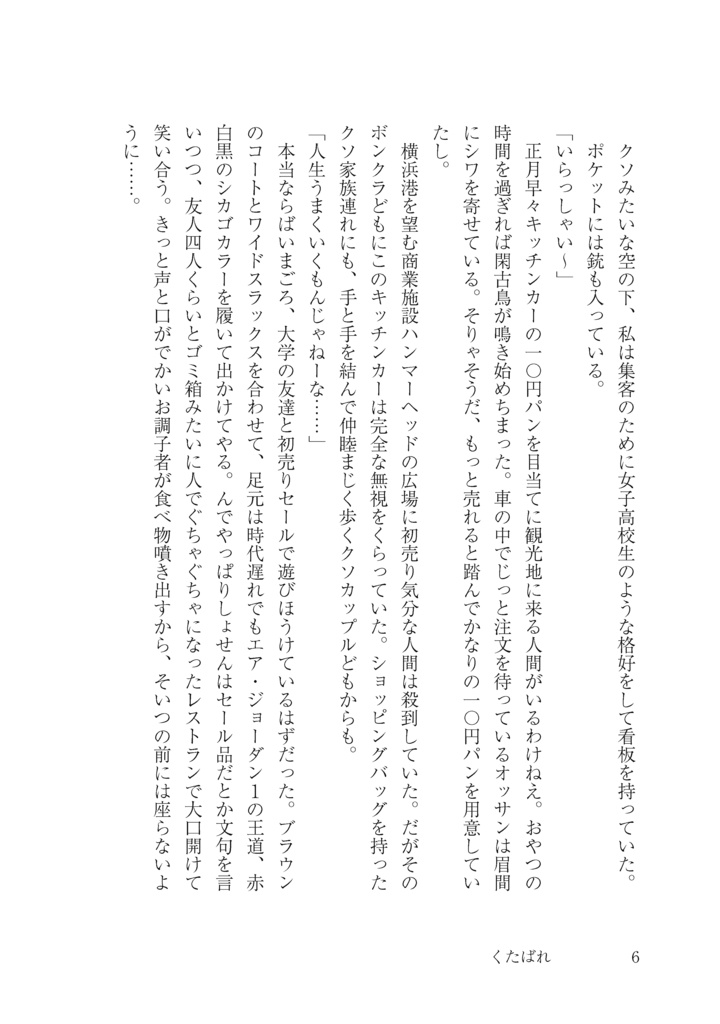 クソみたいな空の下、私は集客のために女子高校生のような格好をして看板を持っていた。
　ポケットには銃も入っている。
「いらっしゃい～」
　正月早々キッチンカーの一〇円パンを目当てに観光地に来る人間がいるわけねえ。おやつの
時間を過ぎれば閑古鳥が鳴き始めちまった。車の中でじっと注文を待っているオッサンは眉間
にシワを寄せている。そりゃそうだ、もっと売れると踏んでかなりの一〇円パンを用意してい
たし。
　横浜港を望む商業施設ハンマーヘッドの広場に初売り気分な人間は殺到していた。だがその
ボンクラどもにこのキッチンカーは完全な無視をくらっていた。ショッピングバッグを持った
クソ家族連れにも、手と手を結んで仲睦まじく歩くクソカップルどもからも。
「人生うまくいくもんじゃねーな……」
　本当ならばいまごろ、大学の友達と初売りセールで遊びほうけているはずだった。ブラウン
のコートとワイドスラックスを合わせて、足元は時代遅れでもエア・ジョーダン1の王道、赤
白黒のシカゴカラーを履いて出かけてやる。んでやっぱりしょせんはセール品だとか文句を言
いつつ、友人四人くらいとゴミ箱みたいに人でぐちゃぐちゃになったレストランで大口開けて
笑い合う。きっと声と口がでかいお調子者が食べ物噴き出すから、そいつの前には座らないよ
うに……。
くたばれ
6